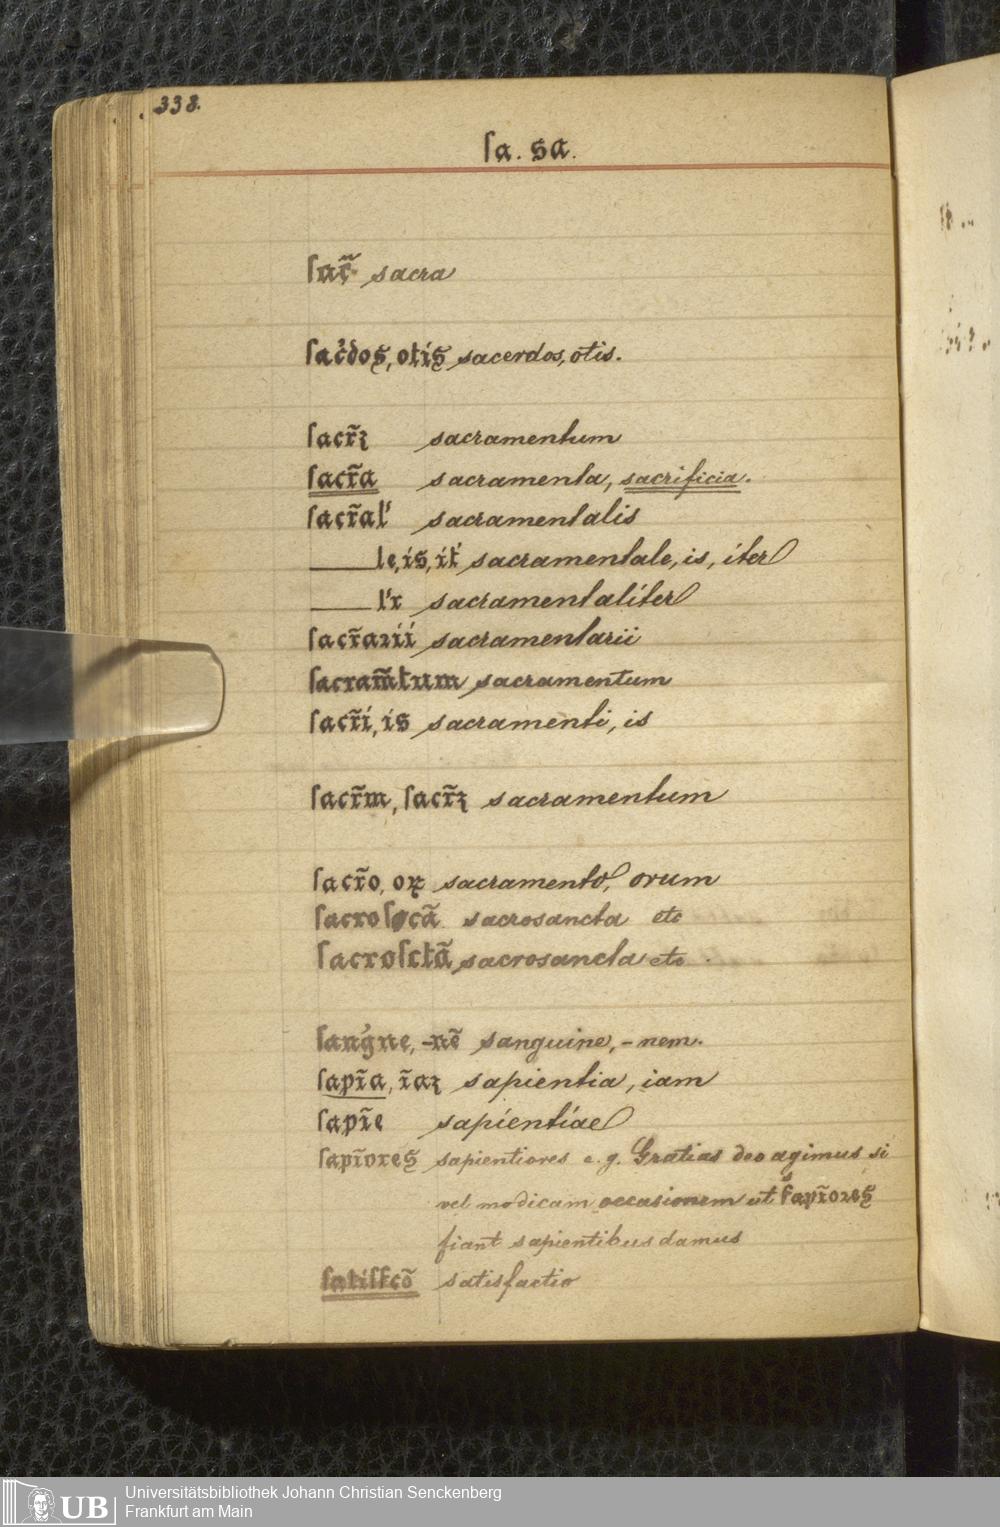 338.
ſa. sa.
ſac̃ sacra
ſac̉dos, otis sacerdos, otis.
ſacr̃ꝫ sacramentum
ſacr̃a sacramenta, sacrificia.
ſacr̃al' sacramentalis
le, is, it' sacramentale, is, iter
l'r sacramentaliter
ſacr̃aꝛii sacramentarii
ſacram̃tum sacramentum
ſacr̃i, is sacramenti, is
ſacr̃m, ſacr̃ꝫ sacramentum
ſacr̃o, oꝝ sacramento, orum
ſacroſcã sacrosancta etc
ſacroſctã sacrosancta etc.
ſang̉ne, -nẽ sanguine, - nem.
ſapĩa, ĩaꝫ sapientia, iam
ſapĩe sapientiae
ſapĩores sapientiores e. g. Gratias deo agimus si
vel modicam occasionem ut ſapĩoꝛes
fiant sapientibus damus
ſatiſfcõ satisfactio
UB Universitätsbibliothek Johann Christian Senckenberg
Frankfurt am Main